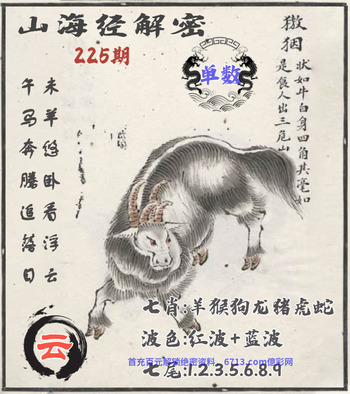 山海经解密
225期
单数
獓𤝞
状如牛白身四角其毫如
是食人出三危山
未羊缱卧看浮云
午马奔腾追落日
云
七肖:羊猴狗龙猪虎蛇
波色:红波+蓝波
首充百元解锁绝密资料，6713.com億彩网
七尾:1.2.3.5.6.8.9